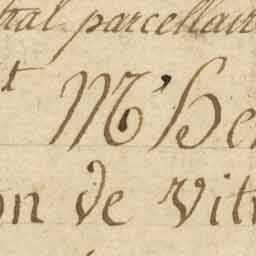 tral parcellair
t Mr De
on de Vit